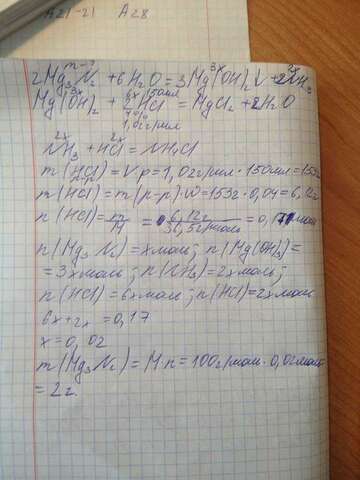 A21-21 A28
m-?
2Mg₃N₂ + 6H₂O = 3Mg(OH)₂↓ + 2NH₃
3x 2x
6x 150мл
Mg(OH)₂ + 2HCl = MgCl₂ + 2H₂O
3x
1,02г/мл
2x 2x
NH₃ + HCl = NH₄Cl
m(HCl) = V·ρ = 1,02г/мл · 150мл = 153г
m(HCl) = m(р-р)·ω = 153г · 0,04 = 6,12г
n(HCl) = m/M = 6,12г/36,5г/моль = 0,17моль
n(Mg₃N₂) = xмоль; n(Mg(OH)₂) =
= 3xмоль; n(NH₃) = 2xмоль;
n(HCl) = 6xмоль; n(HCl) = 2xмоль
6x + 2x = 0,17
x = 0,02
m(Mg₃N₂) = M·n = 100г/моль · 0,02моль
= 2г.